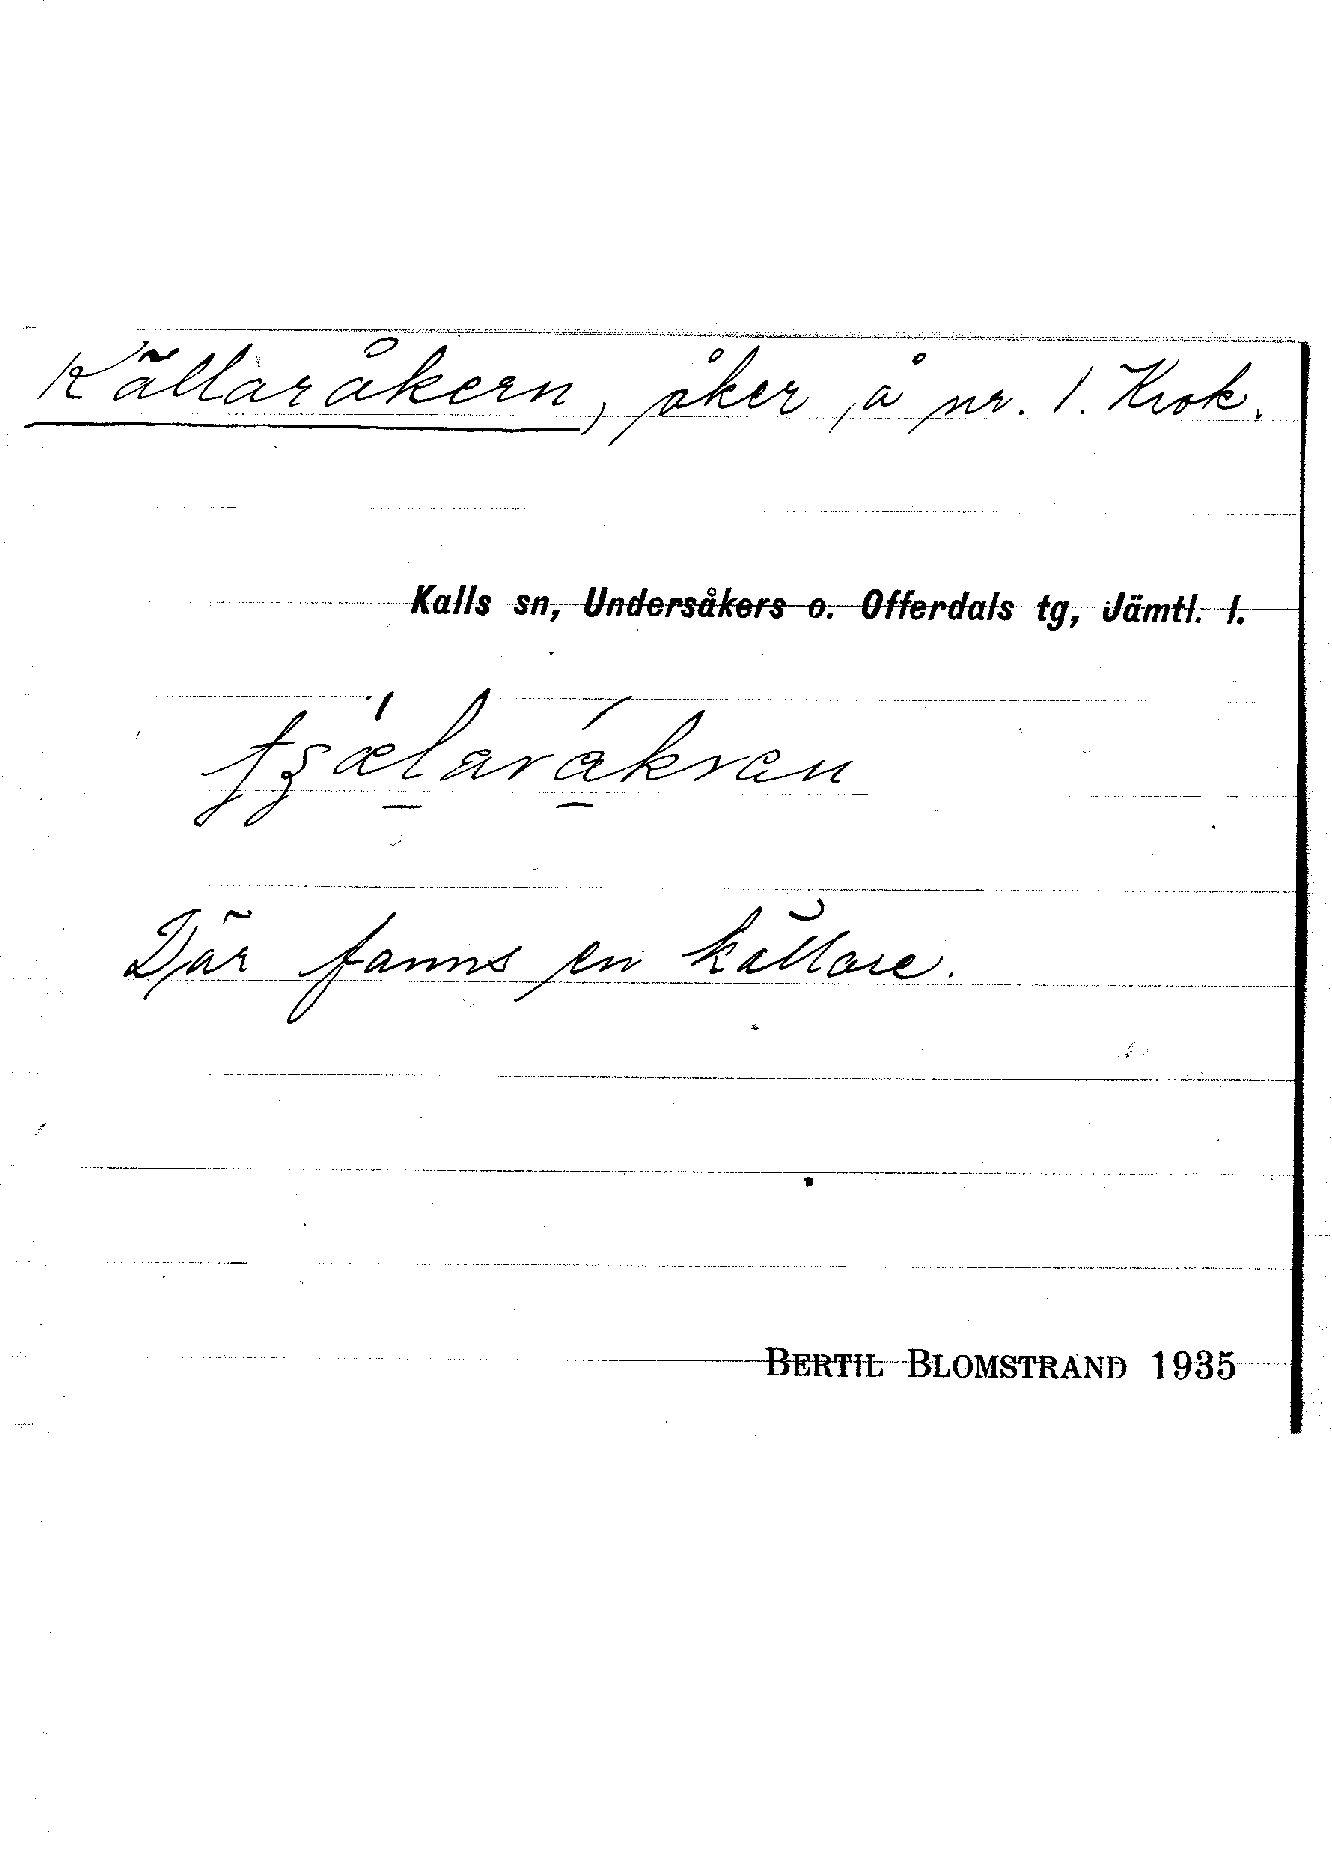 Källaråkern, åker å nr. 1. Krok.
Kalls sn, Undersåkers o. Offerdals tg, Jämtl. l.
Där fanns en källare.
BERTIL BLOMSTRAND 1935